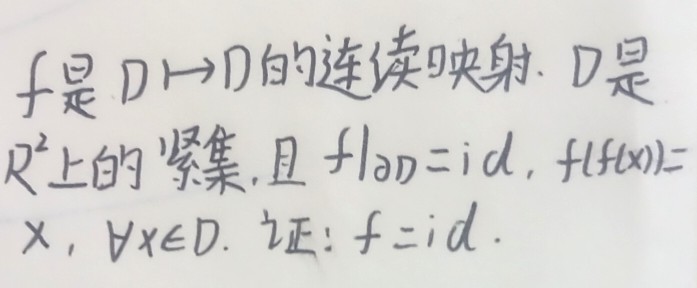 f是 D↦D的连续映射. D是
R²上的 紧集, 且 f|∂D=id, f(f(x))=
x, ∀x∈D. 证: f=id.